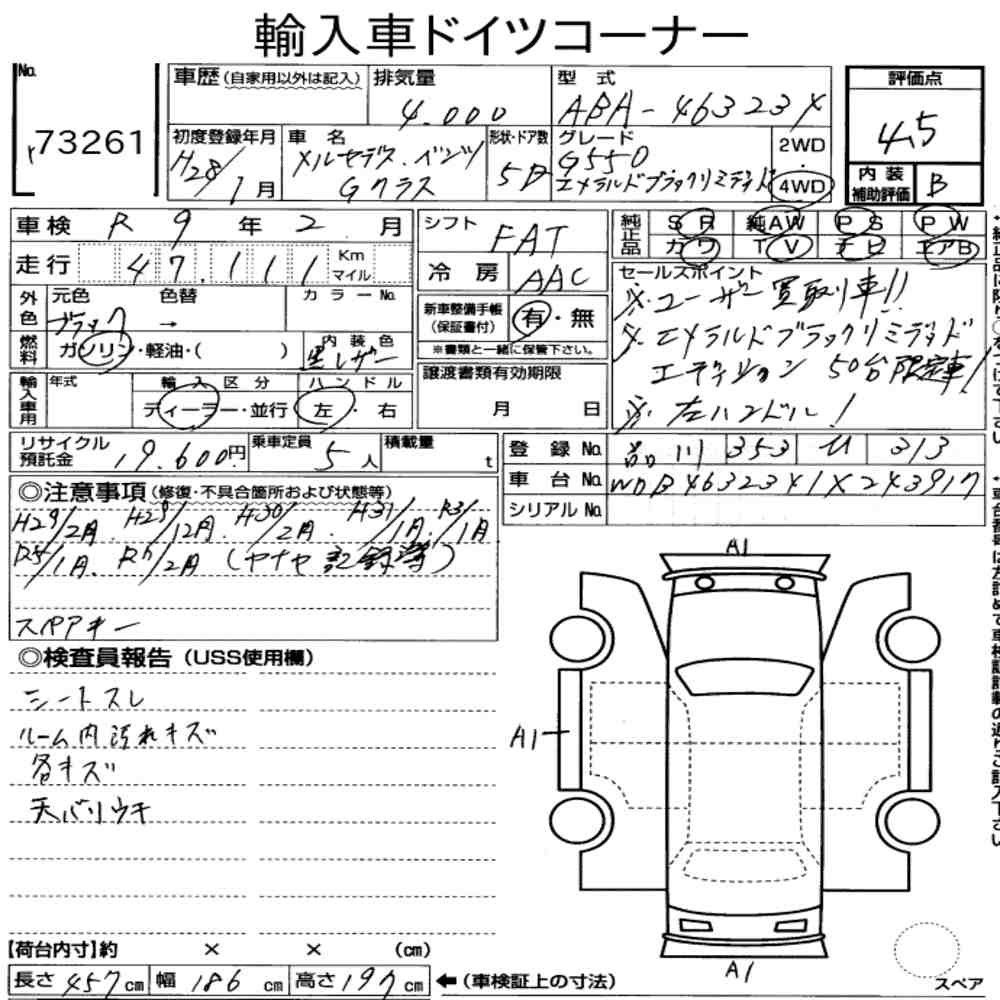 輸入車ドイツコーナー
No.
73261
車歴(自家用以外は記入)
排気量
4.000
型 式
ABA-463234
評価点
4.5
初度登録年月
H28/1月
車 名
メルセデス・ベンツ
Gクラス
形状・ドア数
5D
グレード
G550
エメラルドブラックリミテッド
2WD
4WD
内装
補助評価
B
車検 R 9 年 2 月
走行 47.111 Km マイル
シフト
FAT
冷房
AAC
純正品
SR 純AW PS PW
カワ TV ナビ エアB
外色
元色 色替 カラーNo.
ブラック →
燃料
ガソリン・軽油・( )
内装色
黒レザー
新車整備手帳
(保証書付)
有・無
※書類と一緒に保管下さい。
セールスポイント
※.ユーザー買取り車!!
※.エメラルドブラックリミテッド
エディション 50台限定車!
※.左ハンドル!
輸入車用
年式
輸入区分
ディーラー・並行
ハンドル
左・右
譲渡書類有効期限
月 日
リサイクル
預託金
19.600円
乗車定員
5人
積載量
t
登録No.
品川 353 ひ 313
車台No.
WDB4632341X243917
シリアルNo.
◎注意事項(修復・不具合箇所および状態等)
H29/2月. H29/12月. H30/2月. H31/1月. R3/1月
R5/1月. R6/2月 (ヤナセ記録簿)
スペアキー
◎検査員報告(USS使用欄)
シートスレ
ルーム内汚れキズ
各キズ
天バリウキ
A1
A1
A1
【荷台内寸】約 × × (cm)
長さ 457cm 幅 186cm 高さ 197cm
←(車検証上の寸法)
スペア